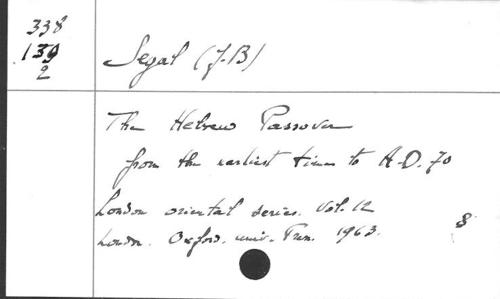 338
139
2
Segal (J.B)
The Hebrew Passover
from the earliest times to A.D. 70
London oriental series. Vol. 12
London. Oxford. univ. Press. 1963. 8